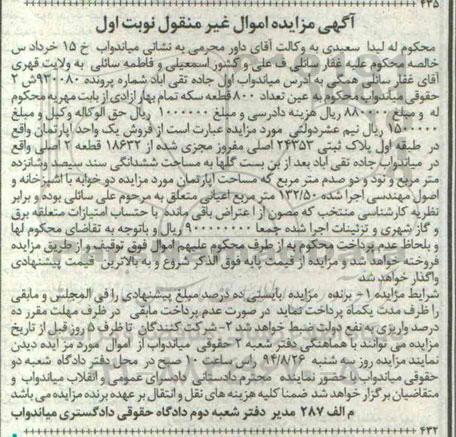 ۴۳۵
آگهی مزایده اموال غیر منقول نوبت اول
محکوم له لیدا سعیدی به وکالت آقای داور محرمی به نشانی میاندواب خ ۱۵ خرداد س
خالصه محکوم علیه غفار سائلی ف علی و کشور اسمعیلی و فاطمه سائلی به ولایت قهری
آقای غفار سائلی همگی به آدرس میاندواب اول جاده تقی آباد شماره پرونده ۹۲۰۰۸۰ش ۲
حقوقی میاندواب محکوم به عین تعداد ۸۰۰ قطعه سکه تمام بهار ازادی از بابت مهریه محکوم
له و مبلغ ریال هزینه دادرسی و مبلغ ۱۰۰۰۰۰۰ ریال حق الوکاله وکیل و مبلغ
۱۵۰۰۰۰۰ ریال نیم عشردولتی مورد مزایده عبارت است از فروش یک واحد آپارتمان واقع
در طبقه اول پلاک ثبتی ۲۴۳۵۳ اصلی مفروز مجزی شده از ۱۸۶۳۲ قطعه ۲ اصلی واقع
در میاندواب جاده تقی آباد بعد از بن بست گلها به مساحت ششدانگی سند سیصد وشانزده
متر مربع و نود و دو صدم متر مربع که مساحت آپارتمان مورد مزایده دو خوابه با آشپزخانه و
اصول مهندسی اجرا شده ۱۳۲/۵۰ متر مربع اعیانی متعلق به مرحوم علی سائلی بوده و برابر
نظریه کارشناسی منتخب که مصون از اعتراض باقی مانده با احتساب امتیازات متعلقه برق
و گاز شهری و تزئینات اجرا شده جمعا ۹۰۰۰۰۰۰۰۰ ریال و باتوجه به تقاضای محکوم لها
و بلحاظ عدم پرداخت محکوم به از طرف محکوم علیهم اموال فوق توقیف و از طریق مزایده
فروخته خواهد شد و مزایده از قیمت پایه فوق الذکر شروع و به بالاترین قیمت پیشنهادی
واگذار خواهد شد
شرایط مزایده ۱- برنده مزایده بایستی ده درصد مبلغ پیشنهادی را فی المجلس و مابقی
را ظرف مدت یکماه پرداخت نماید در صورت عدم پرداخت مابقی در ظرف مهلت مقرر ده
درصد واریزی به نفع دولت ضبط خواهد شد ۲- شرکت کنندگان تا ظرف ۵ روز قبل از تاریخ
مزایده می توانند با هماهنگی دفتر شعبه ۲ حقوقی میاندواب از اموال مورد مزایده دیدن
نمایند مزایده روز سه شنبه ۹۴/۸/۲۶ راس ساعت ۱۰ صبح در محل دفتر دادگاه شعبه دو
حقوقی میاندواب با حضور نماینده محترم دادستانی دادسرای عمومی و انقلاب میاندواب و
متقاضیان برگزار خواهد شد ضمنا کلیه هزینه های نقل و انتقال بر عهده برنده مزایده می باشد
م الف ۲۸۷ مدیر دفتر شعبه دوم دادگاه حقوقی دادگستری میاندواب
۴۳۲